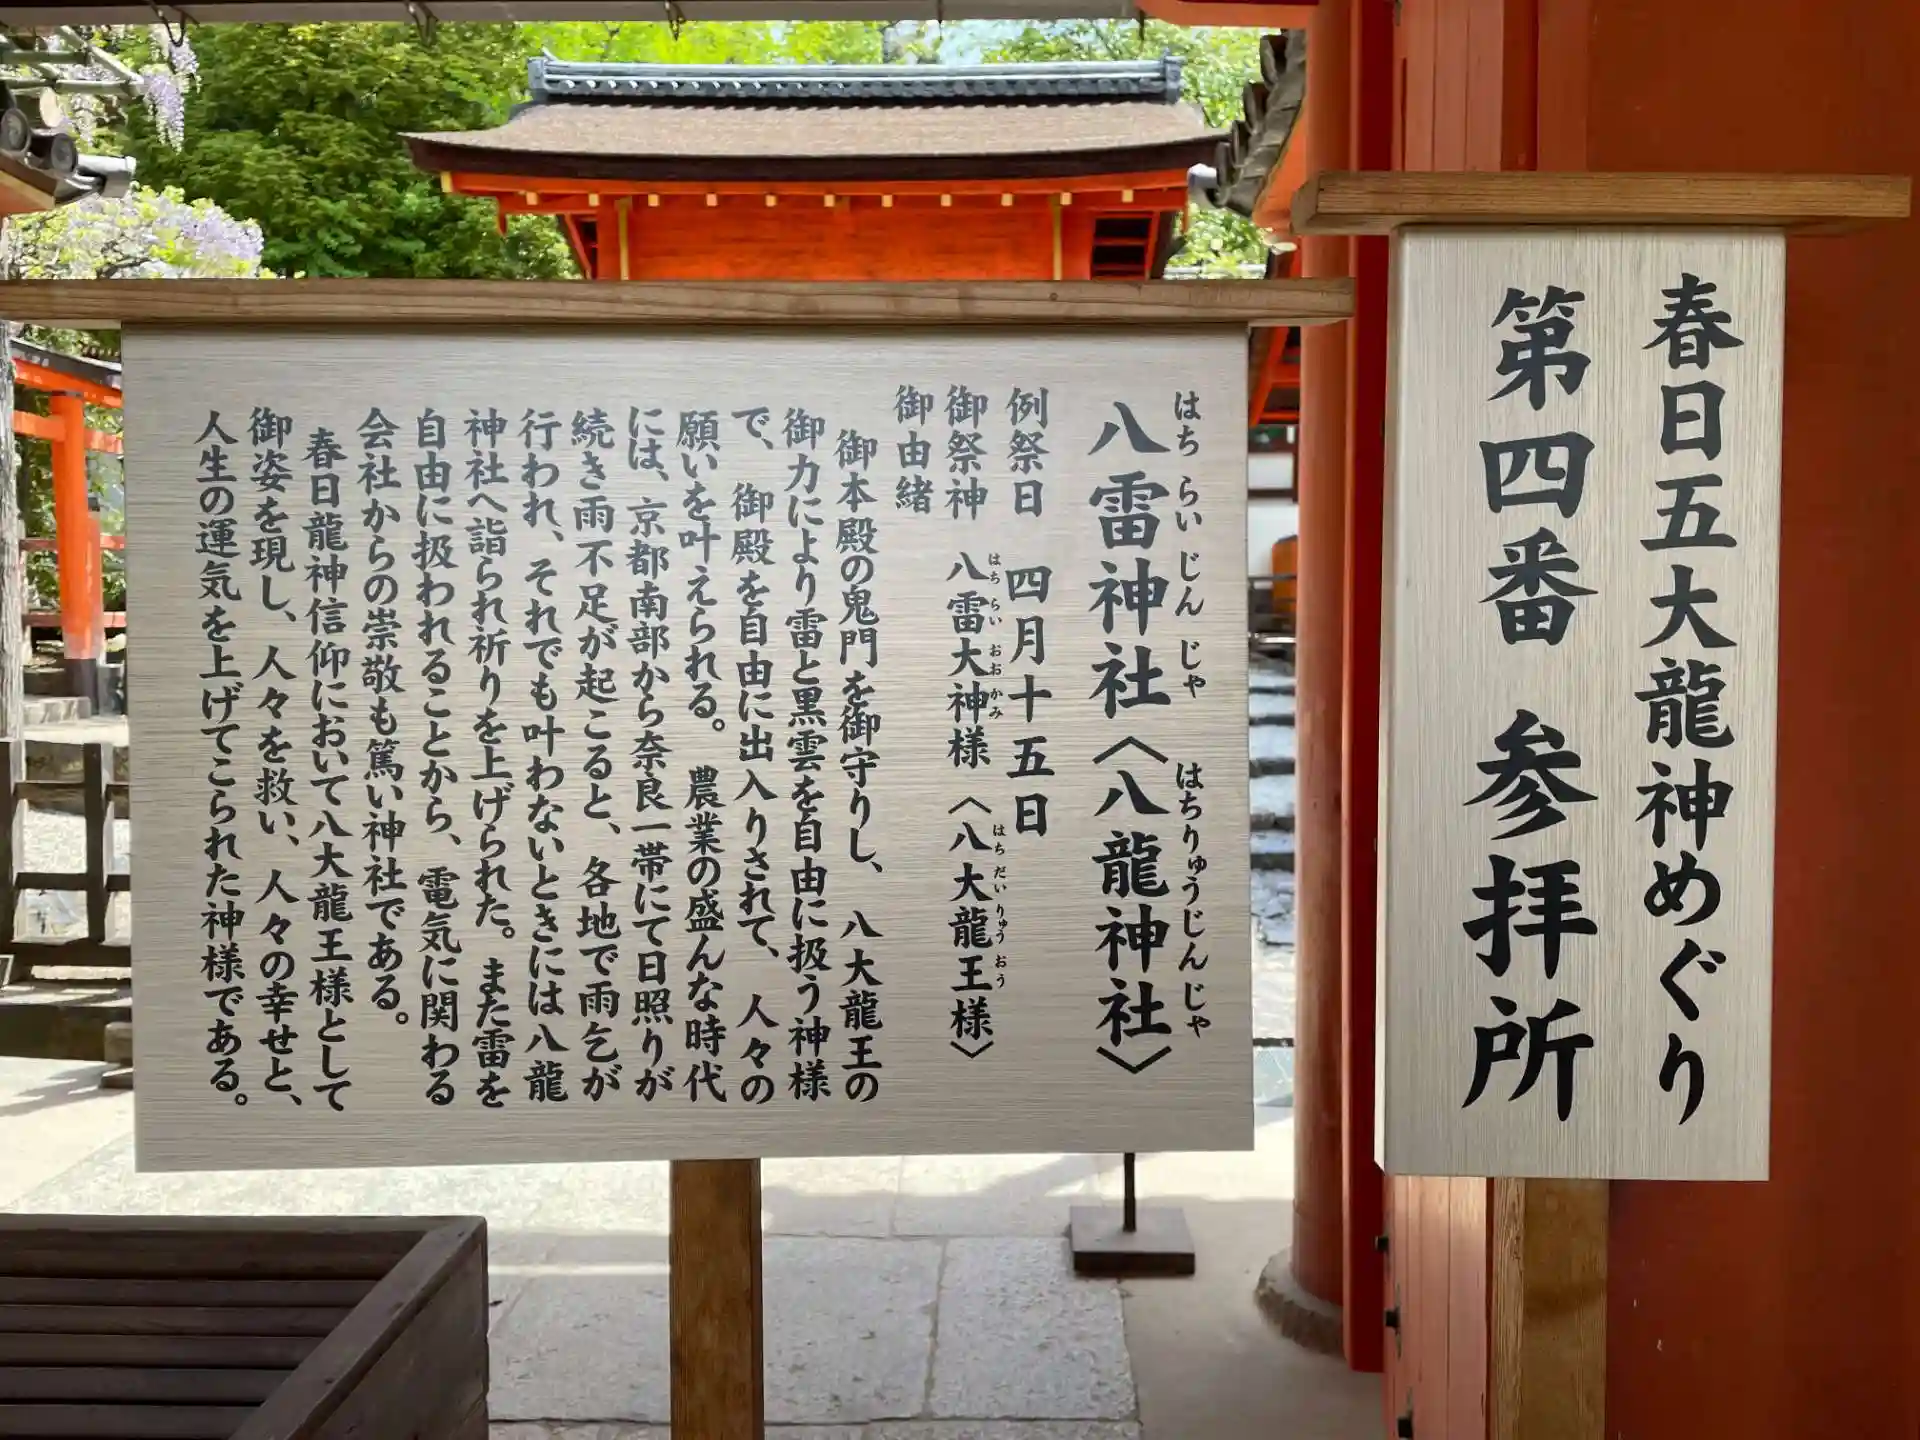 春日五大龍神めぐり
第四番 参拝所
はち らい じん じゃ はちりゅうじんじゃ
八雷神社〈八龍神社〉
例祭日 四月十五日
はち らい おお かみ はち だい りゅう おう
御祭神 八雷大神様〈八大龍王様〉
御由緒
御本殿の鬼門を御守りし、八大龍王の
御力により雷と黒雲を自由に扱う神様
で、御殿を自由に出入りされて、人々の
願いを叶えられる。農業の盛んな時代
には、京都南部から奈良一帯にて日照りが
続き雨不足が起こると、各地で雨乞が
行われ、それでも叶わないときには八龍
神社へ詣られ祈りを上げられた。また雷を
自由に扱われることから、電気に関わる
会社からの崇敬も篤い神社である。
春日龍神信仰において八大龍王様として
御姿を現し、人々を救い、人々の幸せと、
人生の運気を上げてこられた神様である。